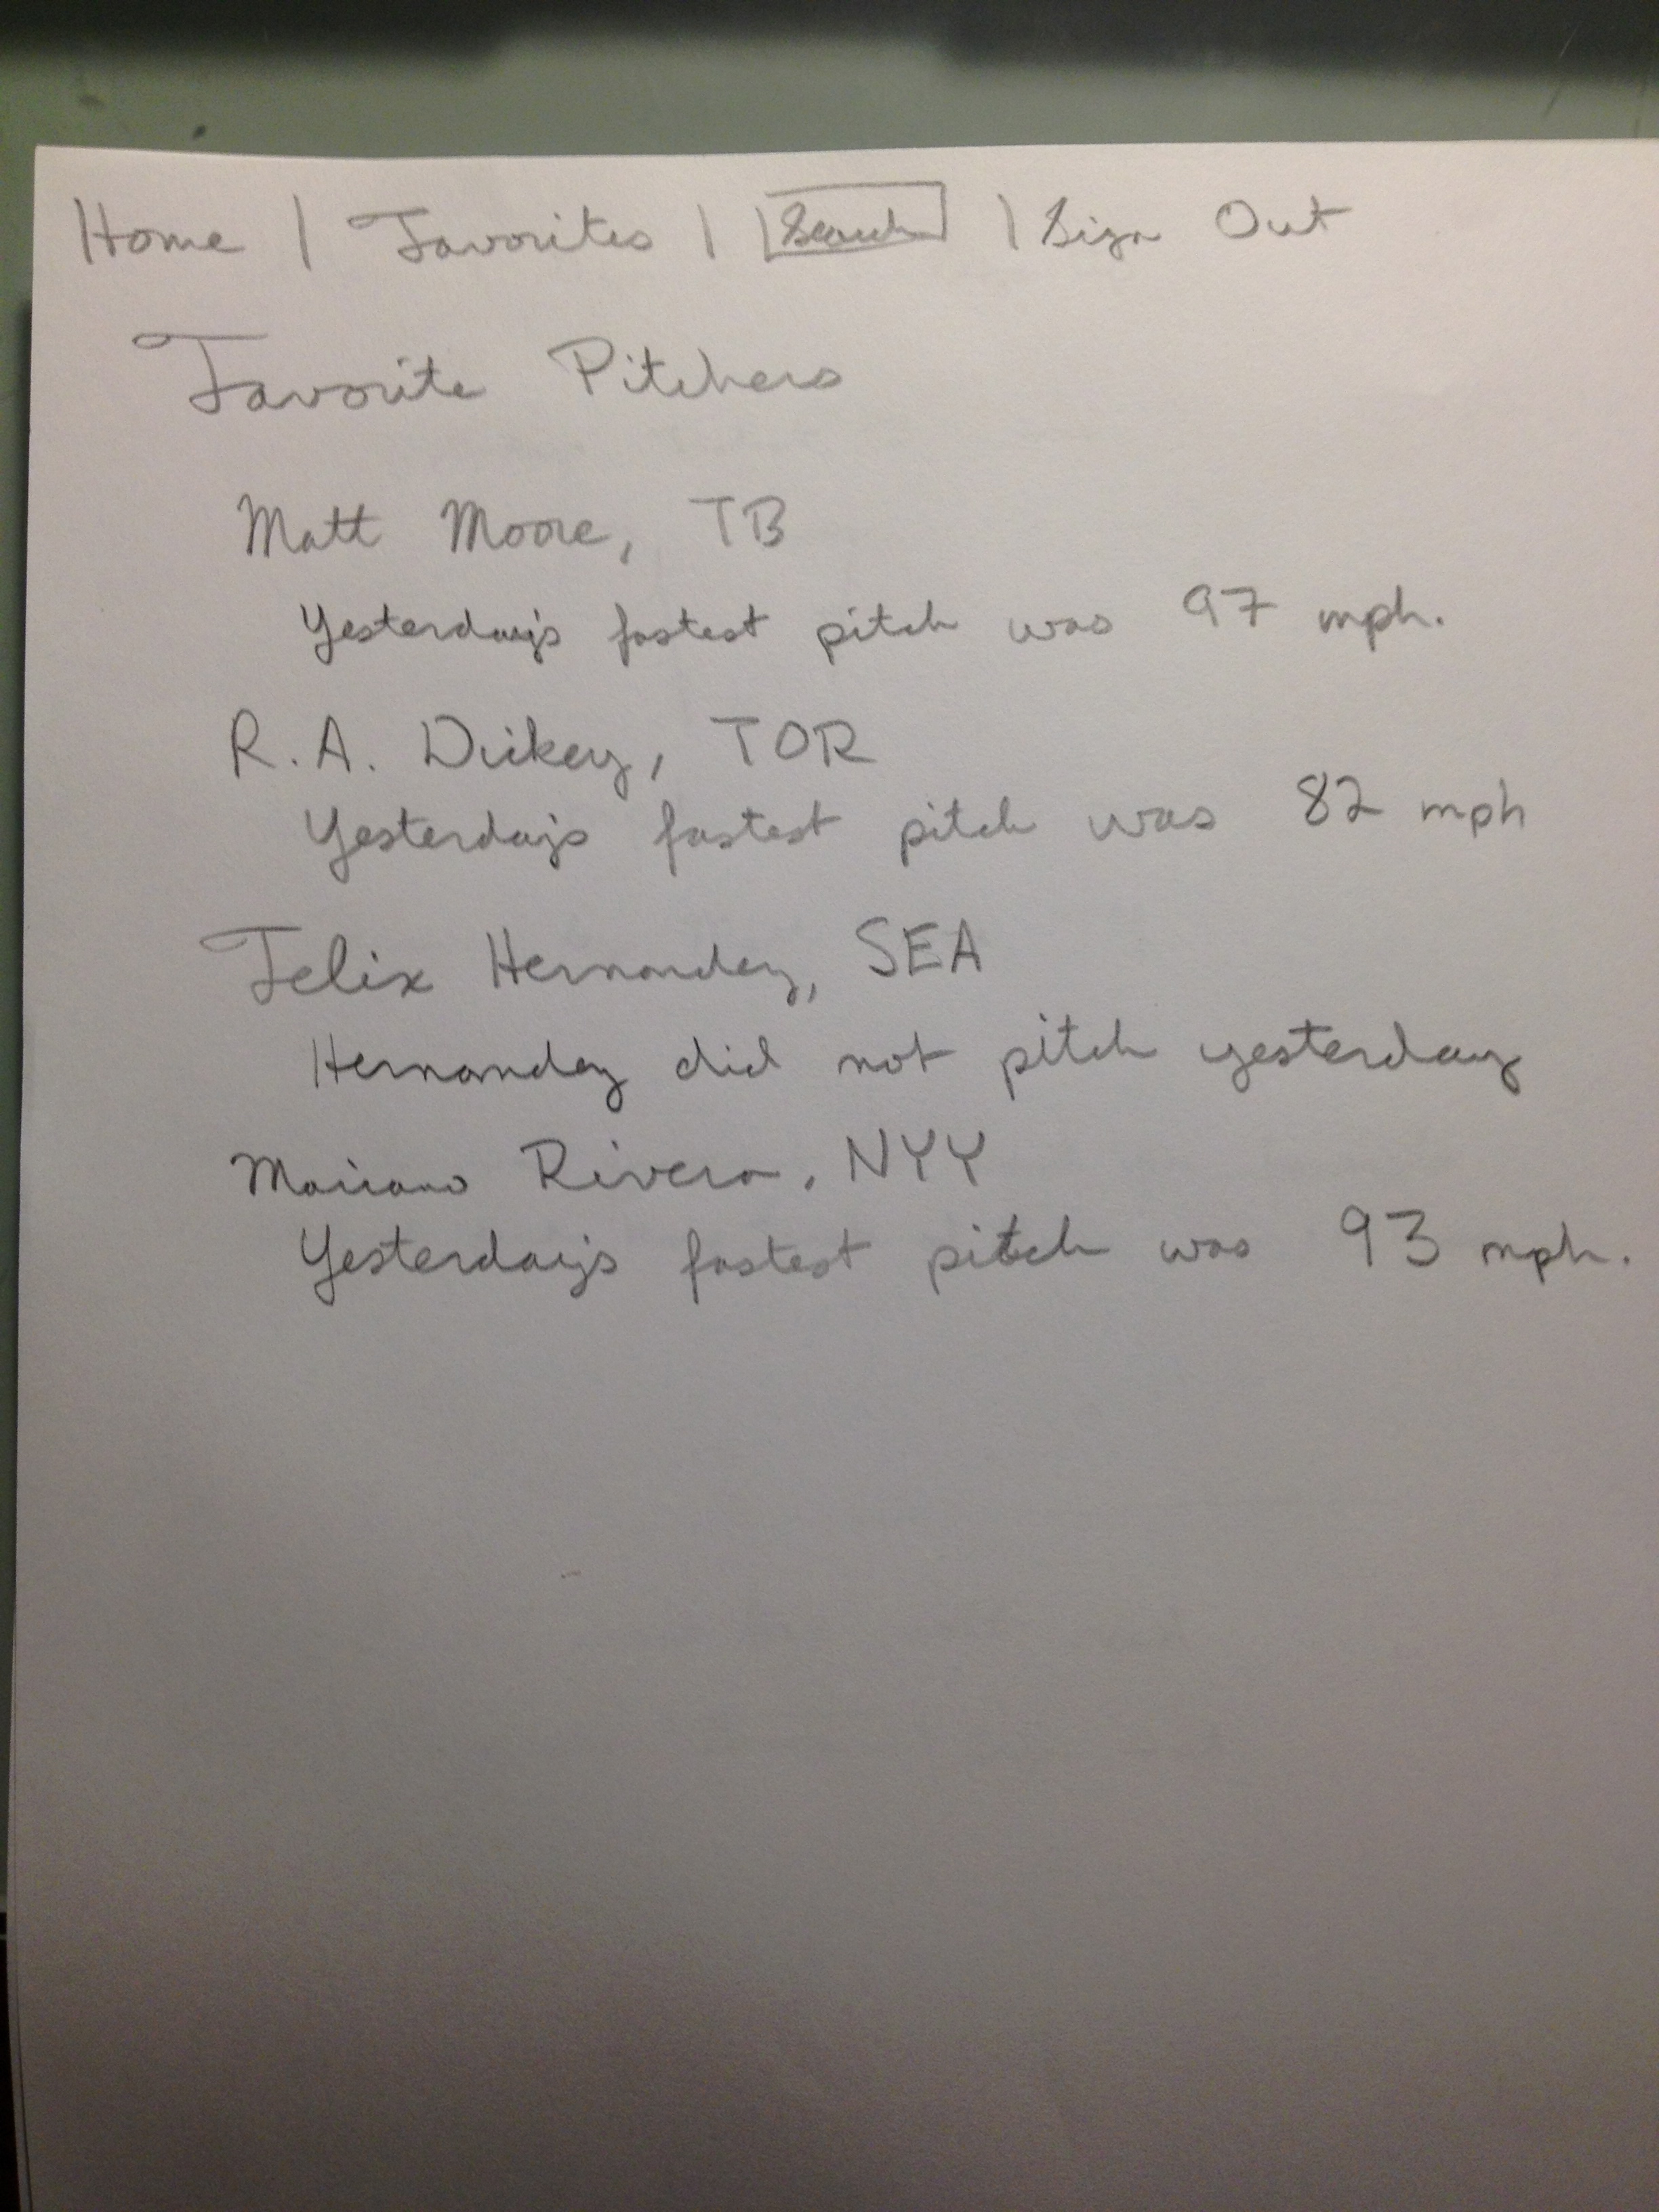 Home | Favorites | Search | Sign Out
Favorite Pitchers
Matt Moore, TB
Yesterday's fastest pitch was 97 mph.
R.A. Dickey, TOR
Yesterday's fastest pitch was 82 mph
Felix Hernandez, SEA
Hernandez did not pitch yesterday
Mariano Rivera, NYY
Yesterday's fastest pitch was 93 mph.